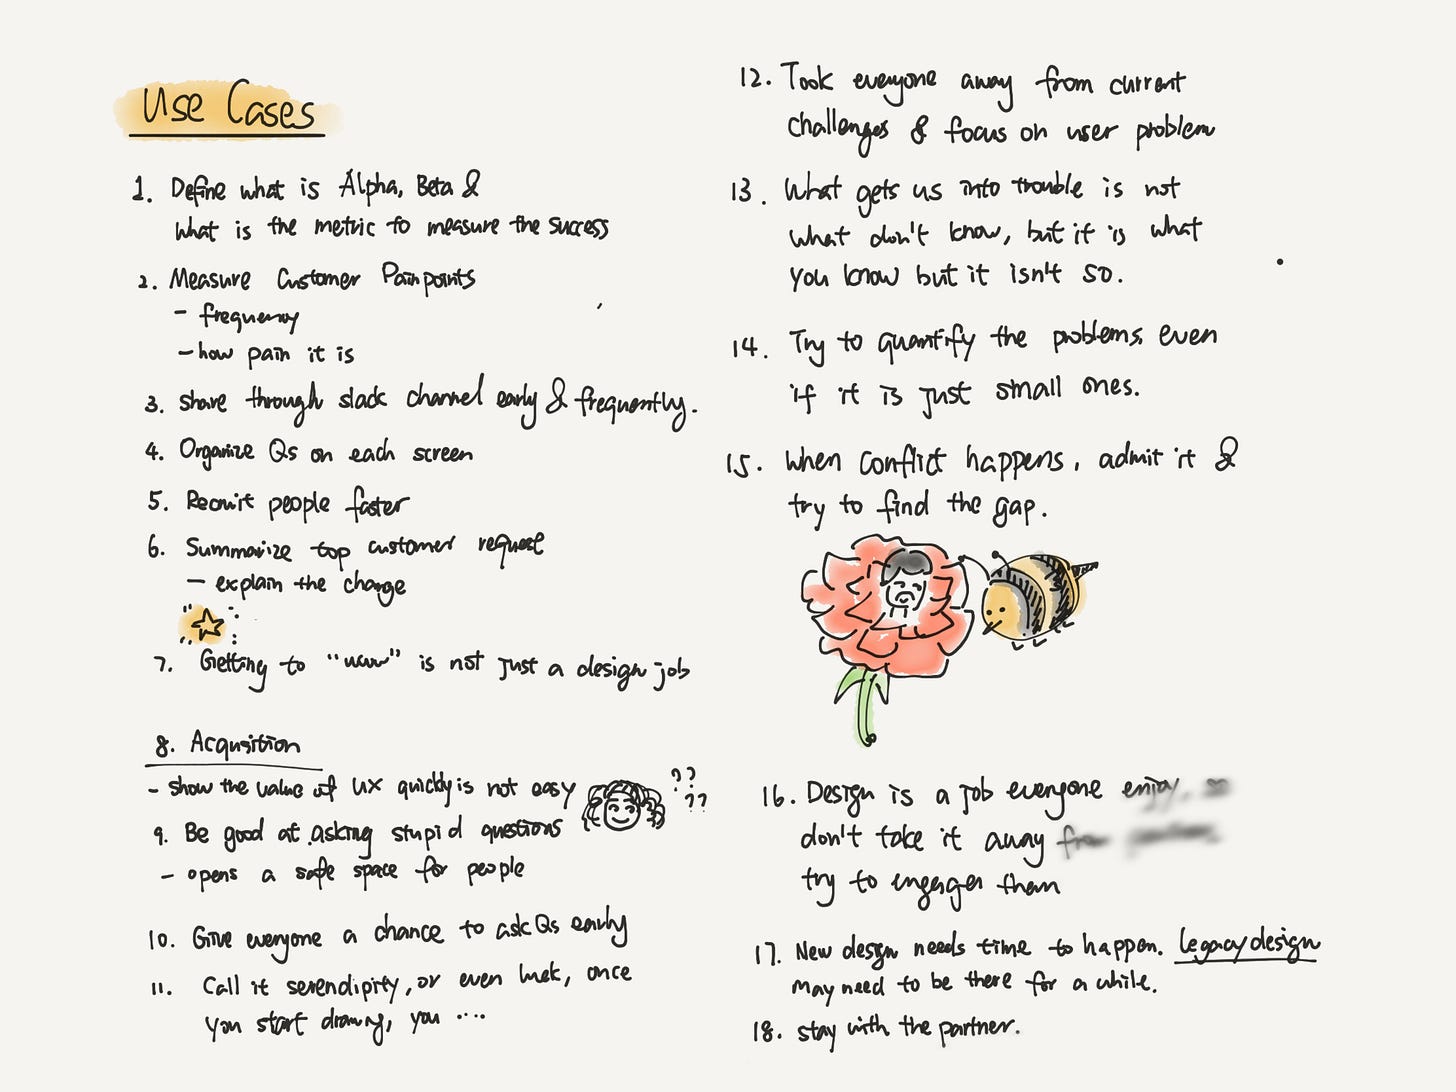 Use Cases
1. Define what is Alpha, Beta &
what is the metric to measure the success
2. Measure Customer Painpoints
- frequency
- how pain it is
3. share through slack channel early & frequently.
4. Organize Qs on each screen
5. Recruit people faster
6. Summarize top customer request
- explain the change
7. Getting to "wow" is not just a design job
8. Acqusition
- show the value of UX quickly is not easy
?? ??
9. Be good at asking stupid questions
- opens a safe space for people
10. Give everyone a chance to ask Qs early
11. Call it serendipity, or even luck, once
you start drawing, you ....
12. Took everyone away from current
challenges & focus on user problem
13. What gets us into trouble is not
what don't know, but it is what
you know but it isn't so.
14. Try to quantify the problems, even
if it is just small ones.
15. when conflict happens, admit it &
try to find the gap.
16. Design is a job everyone enjoy, so
don't take it away from
try to engage them
17. New design needs time to happen. legacy design
may need to be there for a while.
18. stay with the partner.